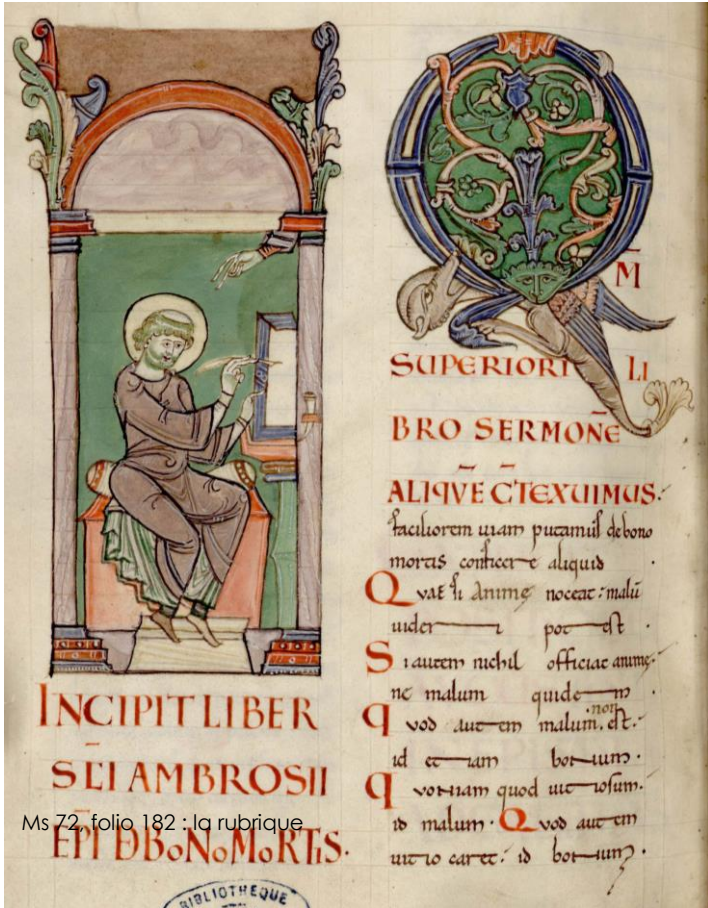 INCIPIT LIBER
SC̄I AMBROSII
EP̄I D̄ BONO MORTIS.
Ms 72, folio 182 : la rubrique
BIBLIOTHEQUE
Q
M̄
SUPERIORI LI
BRO SERMONĒ
ALIQVĒ C̄TEXUIMUS.
faciliorem uiam putamus de bono
mortis conficere aliquid.
Quae si anime noceat: malū
uideri potest.
Si autem nichil officiat anime:
ne malum quidem.
quod autem malum non est:
id etiam bonum.
quoniam quod uitiosum.
id malum. Quod autem
uitio caret: id bonum.